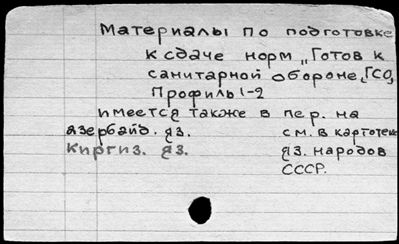 Материалы по подготовке
к сдаче норм „Готов к
санитарной обороне" ГСО,
Профиль 1-2
имеется также в пер. на
азербайд. яз. см. в картотеке
Киргиз. яз. яз. народов
СССР.